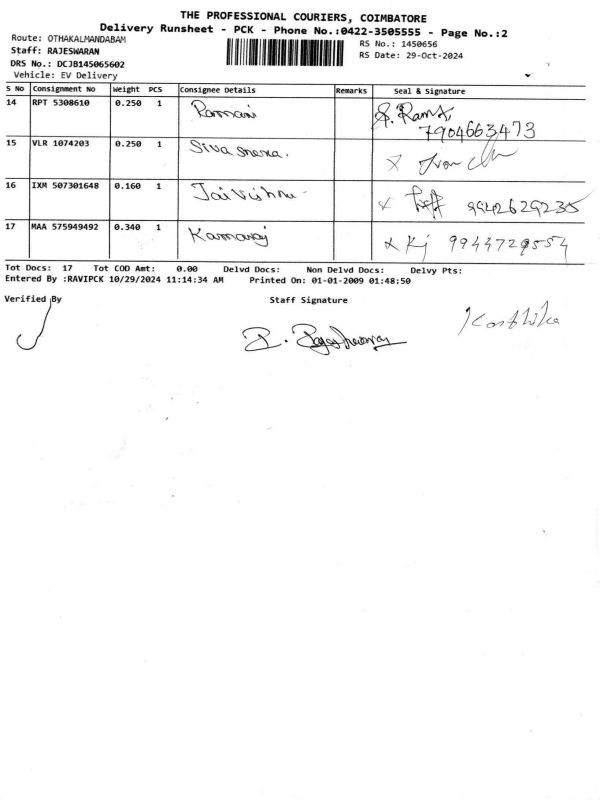 THE PROFESSIONAL COURIERS, COIMBATORE
Delivery Runsheet - PCK - Phone No.:0422-3505555 - Page No.:2
Route: OTHAKALMANDABAM
RS No.: 1450656
Staff: RAJESWARAN
RS Date: 29-Oct-2024
DRS No.: DCJB145065602
Vehicle: EV Delivery
S No Consignment No Weight PCS Consignee Details Remarks Seal & Signature
14 RPT 5308610 0.250 1 Ramani S. Rama
7904663473
15 VLR 1074203 0.250 1 Siva
16 IXM 507301648 0.160 1 Jai Vishnu 9942629235
17 MAA 575949492 0.340 1 Kamaraj x Kj 9944729554
Tot Docs: 17 Tot COD Amt: 0.00 Delvd Docs: Non Delvd Docs: Delvy Pts:
Entered By :RAVIPCK 10/29/2024 11:14:34 AM Printed On: 01-01-2009 01:48:50
Verified By Staff Signature